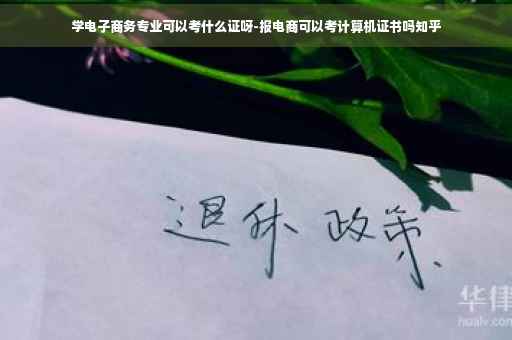 学电子商务专业可以考什么证呀-报电商可以考计算机证书吗知乎
退休 政策
华律
hualv.com